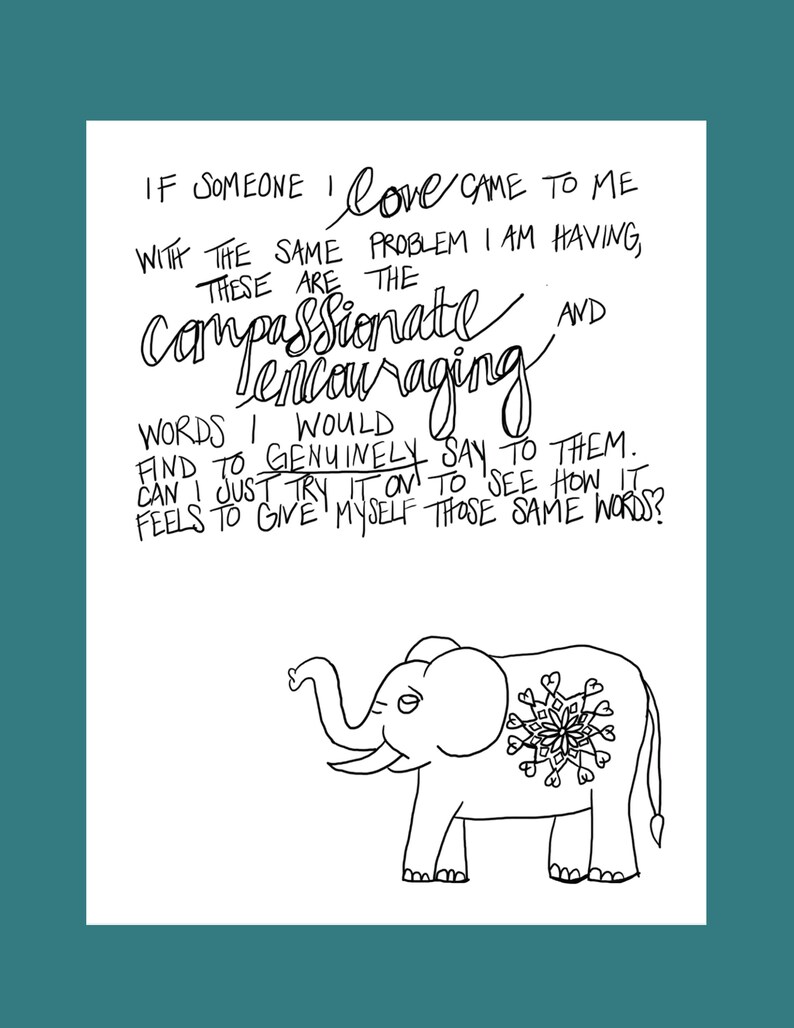 IF SOMEONE I love CAME TO ME
WITH THE SAME PROBLEM I AM HAVING,
THESE ARE THE
compassionate AND
encouraging
WORDS I WOULD
FIND TO GENUINELY SAY TO THEM.
CAN I JUST TRY IT ON TO SEE HOW IT
FEELS TO GIVE MYSELF THOSE SAME WORDS?